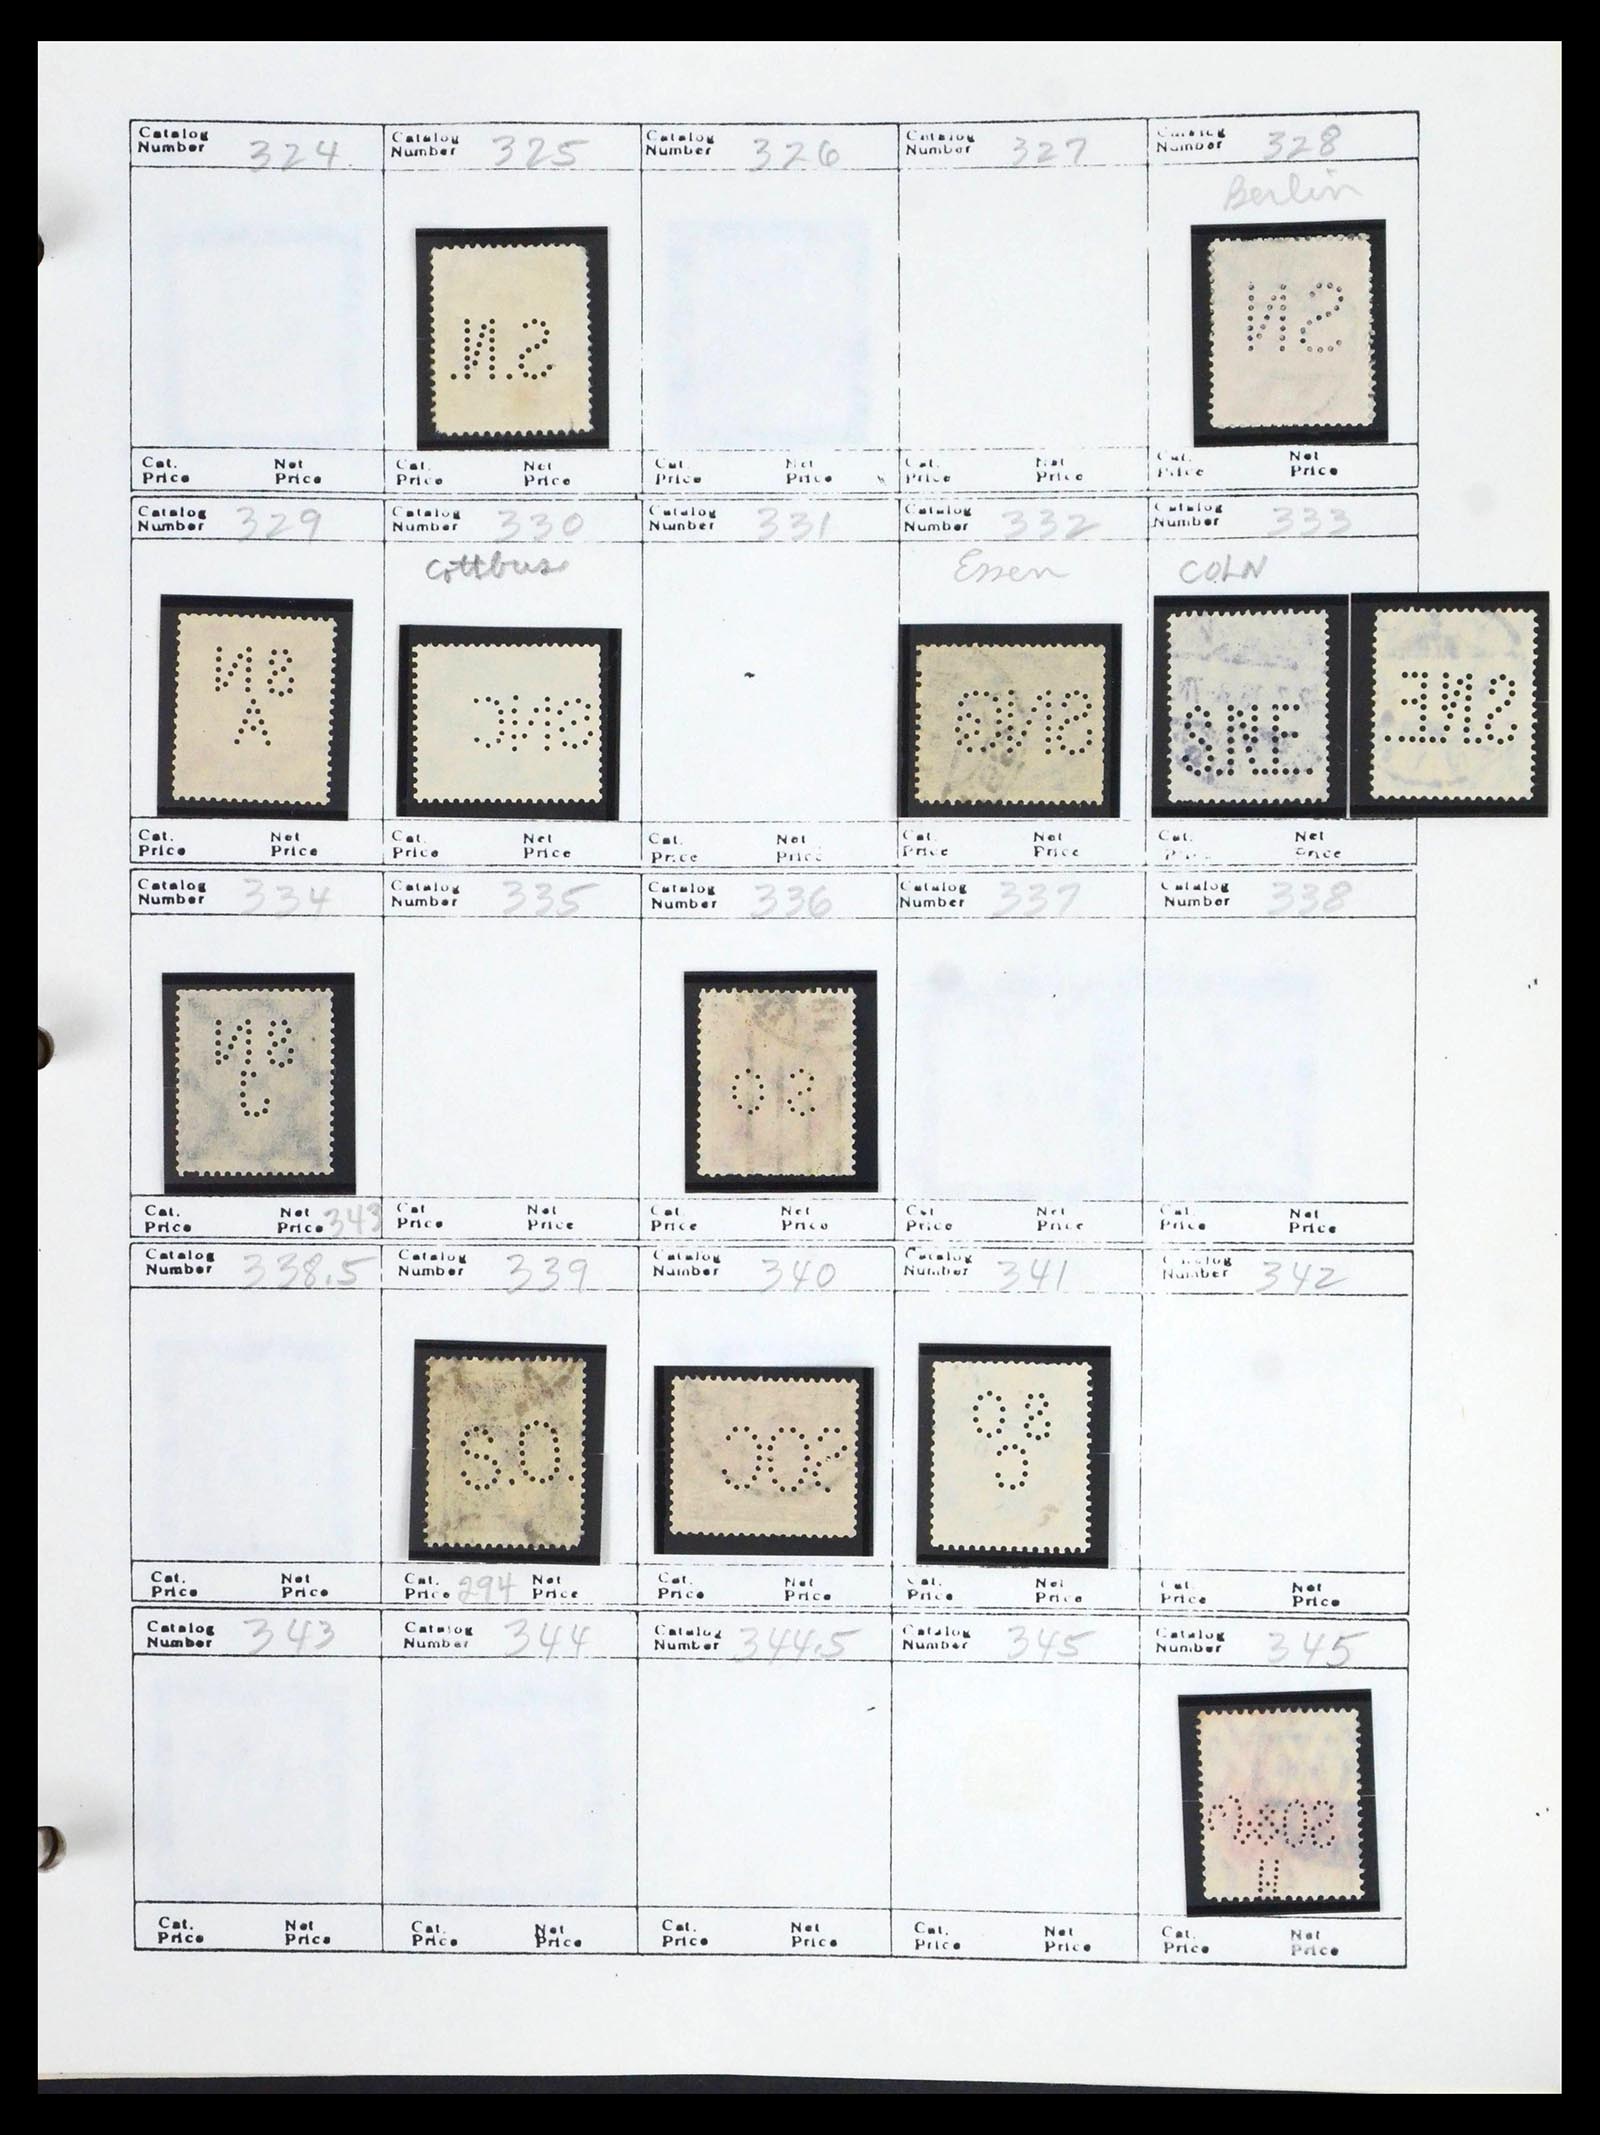 Catalog Number 324 Catalog Number 325 Catalog Number 326 Catalog Number 327 Catalog Number 328
Berlin
.N.S
NS
Cat. Price Net Price Cat. Price Net Price Cat. Price Net Price Cat. Price Net Price Cat. Price Net Price
Catalog Number 329 Catalog Number 330 Catalog Number 331 Catalog Number 332 Catalog Number 333
Cottbus Essen COLN
NS
A
CNS
SNE
E.N.S
Cat. Price Net Price Cat. Price Net Price Cat. Price Net Price Cat. Price Net Price Cat. Price Net Price
Catalog Number 334 Catalog Number 335 Catalog Number 336 Catalog Number 337 Catalog Number 338
NS
J
OS
Cat. Price Net Price 343 Cat. Price Net Price Cat. Price Net Price Cat. Price Net Price Cat. Price Net Price
Catalog Number 338.5 Catalog Number 339 Catalog Number 340 Catalog Number 341 Catalog Number 342
S.O.
COS
OS
C
Cat. Price Net Price Cat. Price 294 Net Price Cat. Price Net Price Cat. Price Net Price Cat. Price Net Price
Catalog Number 343 Catalog Number 344 Catalog Number 344.5 Catalog Number 345 Catalog Number 345
C&OS
H
Cat. Price Net Price Cat. Price Net Price Cat. Price Net Price Cat. Price Net Price Cat. Price Net Price